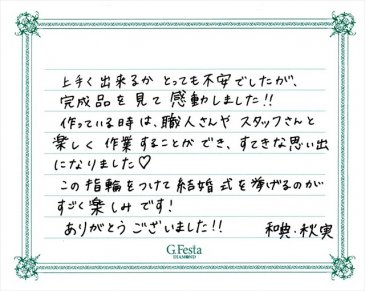 上手く出来るかとっても不安でしたが、
完成品を見て感動しました!!
作っている時は、職人さんやスタッフさんと
楽しく作業することができ、すてきな思い出
になりました♡
この指輪をつけて結婚式を挙げるのが
すごく楽しみです!
ありがとうございました!! 和典・秋実
G.Festa
DIAMOND